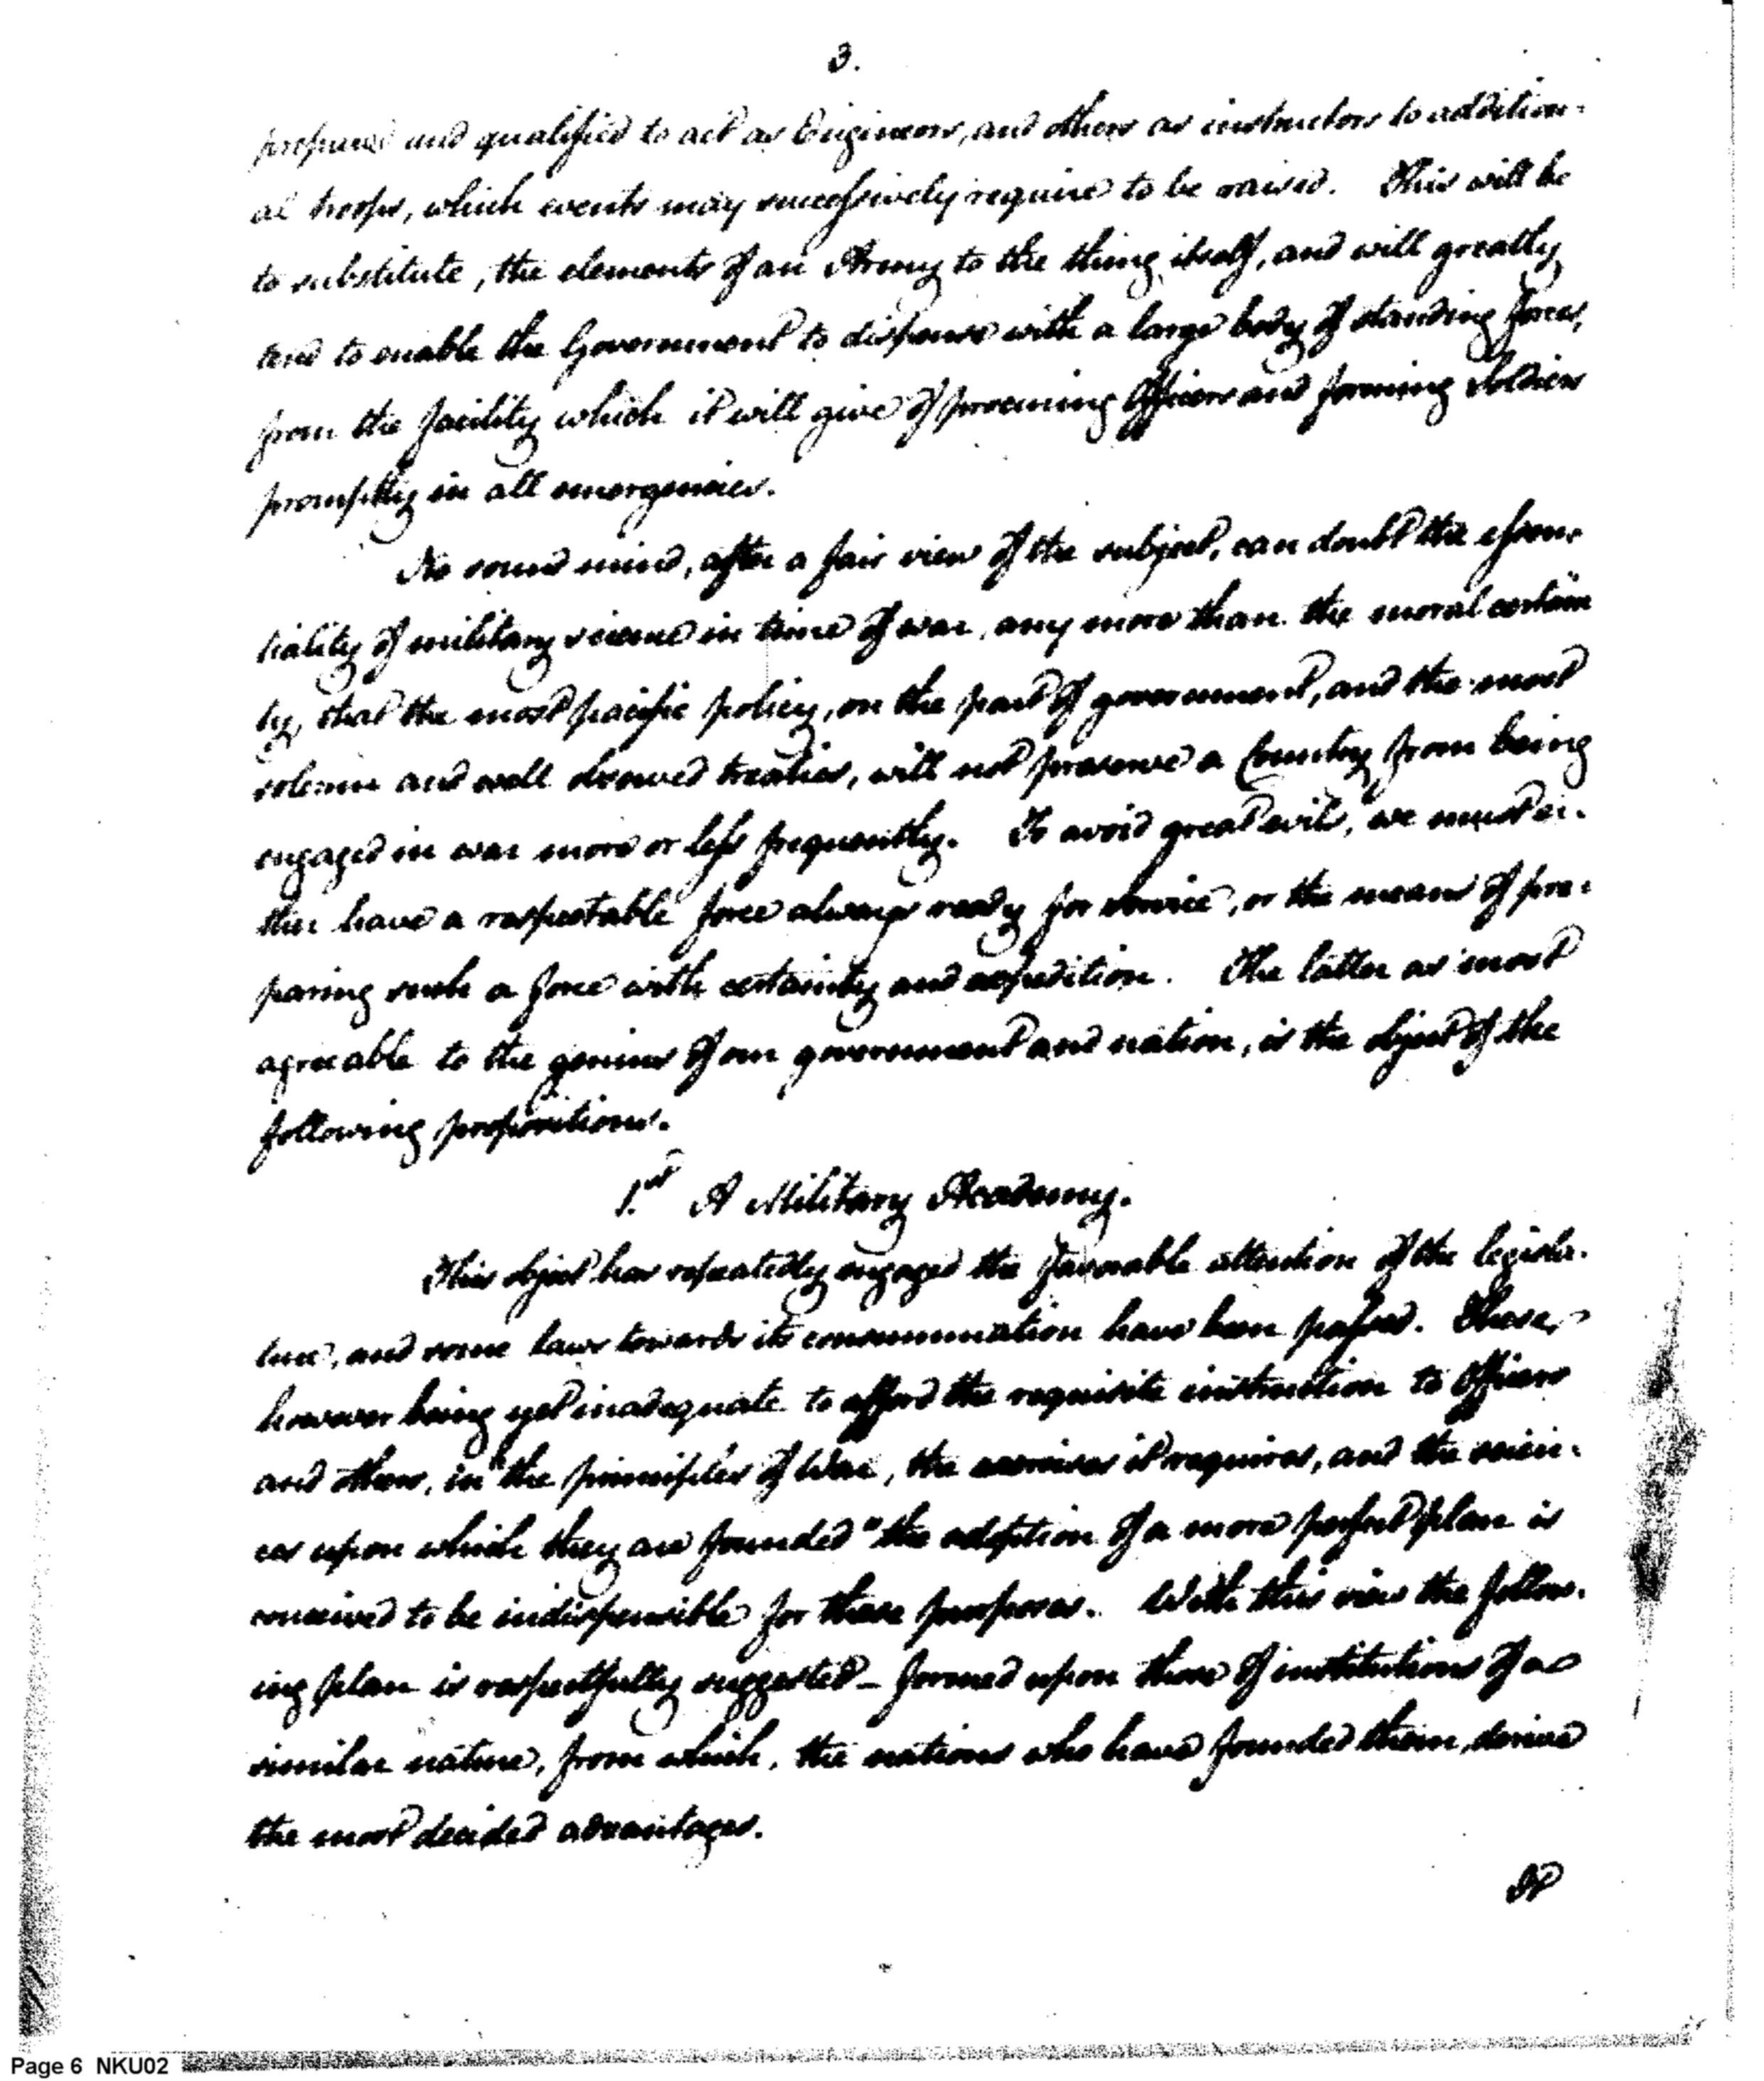 3.
prepared and qualified to act as Engineers, and others as instructors to addition-
al troops, which events may successively require to be raised. This will be
to substitute, the elements of an Army to the thing itself, and will greatly
tend to enable the Government to dispense with a large body of standing force,
from the facility which it will give of procuring Officers and forming Soldiers
promptly in all emergencies.
No sound mind, after a fair view of the subject, can doubt the essen-
tiality of military science in time of war, any more than the moral certain
ty, that the most pacific policy, on the part of government, and the most
solemn and well observed treaties, will not preserve a Country from being
engaged in war more or less frequently. To avoid great evils, we must ei-
ther have a respectable force always ready for service, or the means of pre-
paring such a force with certainty and expedition. The latter as most
agreeable to the genius of our government and nation, is the object of the
following propositions.
1.st A Military Academy.
This object has repeatedly engaged the favorable attention of the legisla-
ture, and some laws towards its consummation have been passed. These,
however being yet inadequate to afford the requisite instruction to Officers
and others, in "the principles of War, the exercises it requires, and the scien-
ces upon which they are founded" the adoption of a more perfect plan is
conceived to be indispensible for these purposes. With this view the follow-
ing plan is respectfully suggested - formed upon those of institutions of a
similar nature, from which, the nations who have founded them, derive
the most decided advantages.
It
Page 6 NKU02